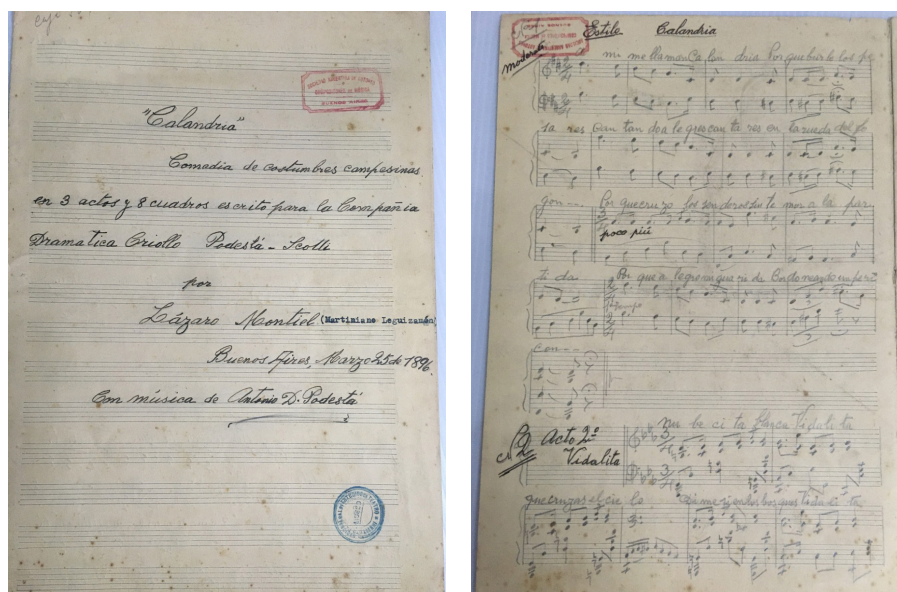 "Calandria"
Comedia de costumbres campesinas
en 3 actos y 8 cuadros escrito para la Compañia
Dramatica Criollo Podestá - Scotti
por
Lázaro Montiel (Martiniano Leguizamón)
Buenos Aires, Marzo 25 de 1896.
Con música de Antonio D. Podestá
BUENOS AIRES
Estilo Calandria
moderato
mi me llaman Ca lan dria Por que burlo los pe
sa res Can tan do a le gre can ta res en la rueda del fo
gon - - - Por que cruzo los senderos sin te mor a la par
poco più
ti da Por que a legre mi que ri da Bordoneando
Tempo
con - - -
Nº 2 Acto 2º
Vidalita
nu be ci ta blanca Vidali ta
que cruzas el cie lo Vidali ta